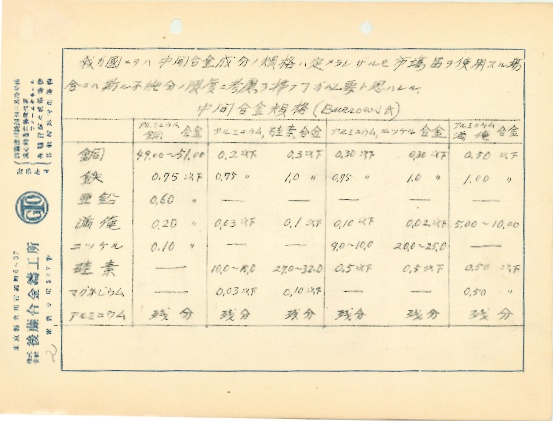 我カ國ニテハ中間合金成分ノ規格ハ定メラレザルモ市場品ヲ使用スル場
合ニハ斯ル不純分ノ限度ニ考慮ヲ拂フ必要ト思ハレル
中間合金規格 (Burrows氏)
アルミニウム 銅 合金 アルミニウム,硅素合金 アルミニウム,ニッケル合金 アルミニウム 満俺 合金
銅 49.00~51.00 0.2以下 0.3以下 0.30以下 0.30以下 0.50以下
鉄 0.75 〃 0.75 〃 1.0 〃 0.75 〃 1.0 〃 1.00 〃
亜鉛 0.60 〃 — — — — —
満俺 0.20 〃 0.03以下 0.1以下 0.10以下 0.02以下 5.00~10.00
ニッケル 0.10 〃 — — 9.0~10.0 20.0~25.0 —
硅素 — 10.0~15.0 27.0~32.0 0.5以下 0.5以下 0.50以下
マグネシウム — 0.03以下 0.10以下 — — 0.50 〃
アルミニウム 残分 残分 残分 残分 残分 残分
株式會社 後藤合金鑄工所
GTO